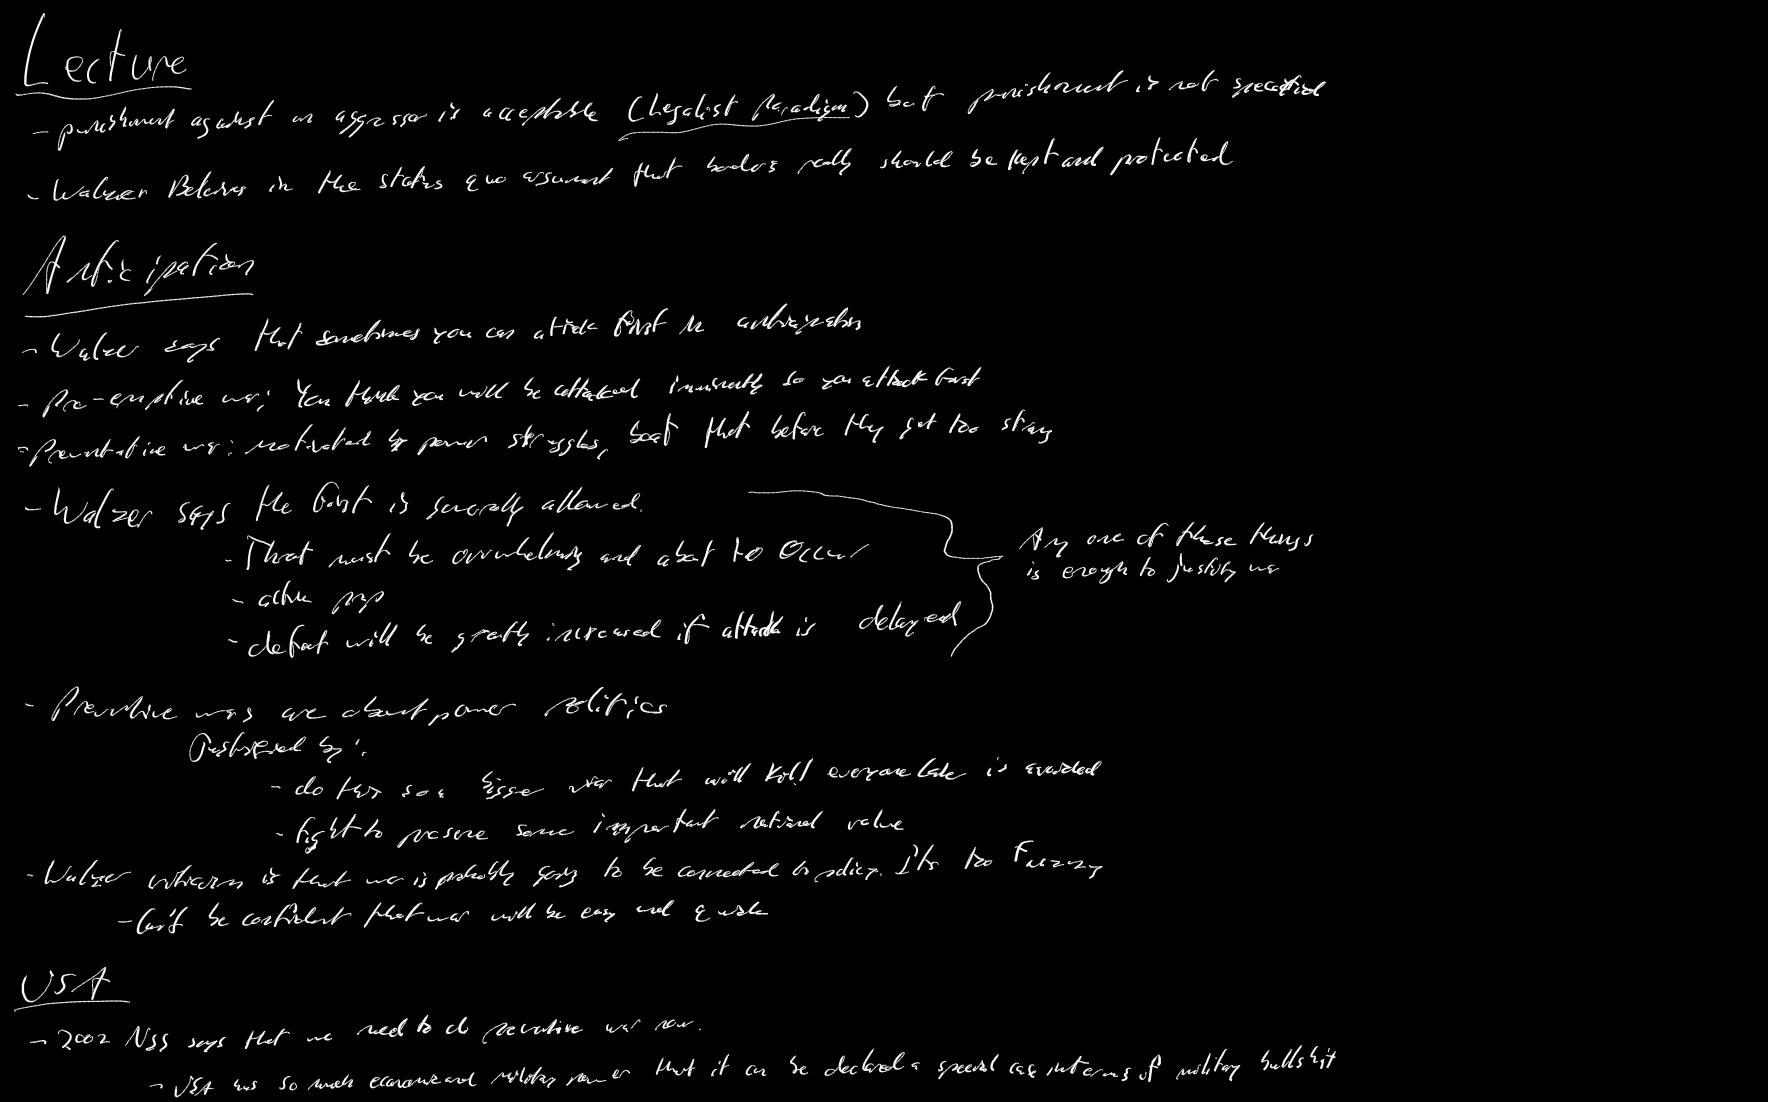 Lecture
- punishment against an aggressor is acceptable (Legalist Paradigm) but punishment is not specified
- Walzer Believes in the status quo argument that borders really should be kept and protected
Anticipation
- Walzer says that sometimes you can attack first in anticipation
- Pre-emptive war: You think you will be attacked imminently so you attack first
- Preventative war: motivated by power struggles, beat that before they get too strong
- Walzer says the first is generally allowed.
- Threat must be overwhelming and about to occur
- active prep
- defeat will be greatly increased if attack is delayed
Any one of these things
is enough to justify war
- Preventive wars are about power politics
Justified by:
- do this so a bigger war that will kill everyone later is avoided
- fight to preserve some important national value
- Walzer criticism is that war is probably going to be connected to policy. It's too Fuzzy
- Can't be confident that war will be easy and quick
USA
- 2002 NSS says that we need to do preventive war now.
- USA has so much economic and military power that it can be declared a special case in terms of military bullshit